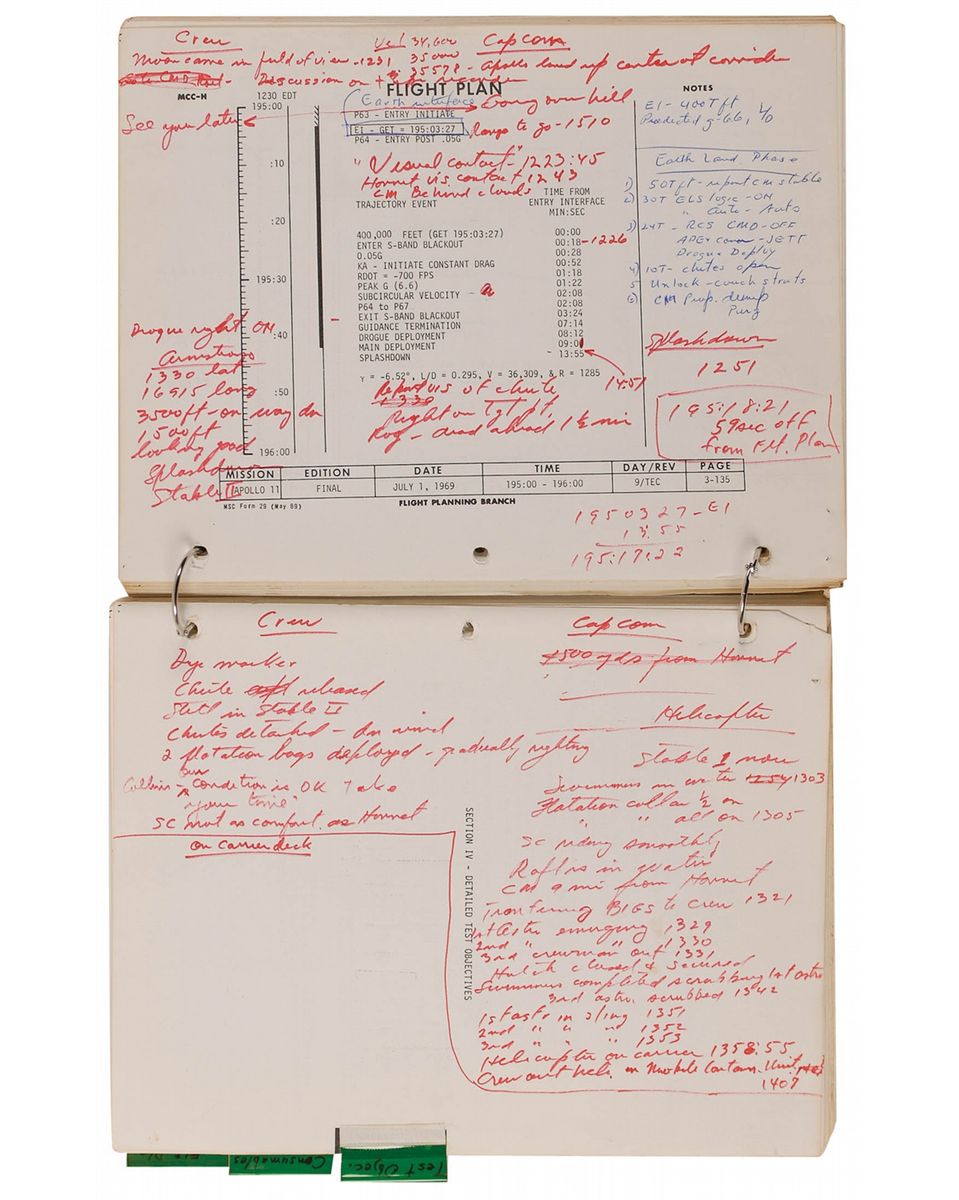 Crew
Vel 34,600
Capcom
Moon came in field of view - 1221
35000
35578 - Apollo lined up center of corridor
Discussion on
FLIGHT PLAN
MCC-H
1230 EDT
NOTES
195:00
Earth interface
Going over hill
See you later
P63 - ENTRY INITIATE
EI - GET = 195:03:27
Range to go - 1510
P64 - ENTRY POST .05G
EI - 400T ft
Predicted g - 6.6,
"Visual contact" - 1223:45
Hornet vis. contact 1243
CM Behind clouds
Earth Land. Phase
1) 50T ft - report cm stable
2) 30T ELS logic - ON
" Auto - Auto
3) 24T - RCS CMD - OFF
APEX cover - JETT
Drogue Deploy
4) 10T - chutes open
5 Unlock - couch struts
6) CM Prop. dump
Purg
:10
:20
195:30
:40
:50
196:00
TRAJECTORY EVENT
TIME FROM
ENTRY INTERFACE
MIN:SEC
400,000 FEET (GET 195:03:27) 00:00
ENTER S-BAND BLACKOUT 00:18 - 1226
0.05G 00:28
KA - INITIATE CONSTANT DRAG 00:52
RDOT = -700 FPS 01:18
PEAK G (6.6) 01:22
SUBCIRCULAR VELOCITY 02:08
P64 to P67 02:08
EXIT S-BAND BLACKOUT 03:24
GUIDANCE TERMINATION 07:14
DROGUE DEPLOYMENT 08:12
MAIN DEPLOYMENT 09:00
SPLASHDOWN 13:55
γ = -6.52°, L/D = 0.295, V = 36,309, & R = 1285
14:51
Report vis of chute
Right on Tgt pt,
dead ahead, 1½ min
Drogue right ON
Armstrong
1330 lat
16915 long
3500 ft - on way dn
1,500 ft
looking good
Splashdown
Stable II
Splashdown
1251
195:18:21
59 sec off
from Flt. Plan
MISSION EDITION DATE TIME DAY/REV PAGE
APOLLO 11 FINAL JULY 1, 1969 195:00 - 196:00 9/TEC 3-135
MSC Form 29 (May 69)
FLIGHT PLANNING BRANCH
195 03 27 - EI
13:55
195:17:22
Crew
Dye marker
Chute released
Still in Stable II
Chutes detached - dn wind
2 flotation bags deployed - gradually righting
Collins - Our condition is OK Take
your time"
SC not as comfort. as Hornet
on carrier deck
Capcom
1500 yds from Hornet
Helicopter
Stable 1 now
Swimmers in water 1254 1303
Flotation collar ½ on
" " all on 1305
SC riding smoothly
Raft is in water
CM 9 mi from Hornet
Transferring BIGS to crew 1321
1st Astr emerging 1329
2nd " " 1330
3rd crewman out 1331
Hatch closed & secured
Swimmers completed scrubbing 1st astro
3rd astro. scrubbed 1342
1st astr in sling 1351
2nd " " " 1352
3rd " " " 1353
Helicopter on carrier 1358:55
Crew out heli. in Mobile Contam. Unit
1407
SECTION IV - DETAILED TEST OBJECTIVES
Consumables
Test Objec.